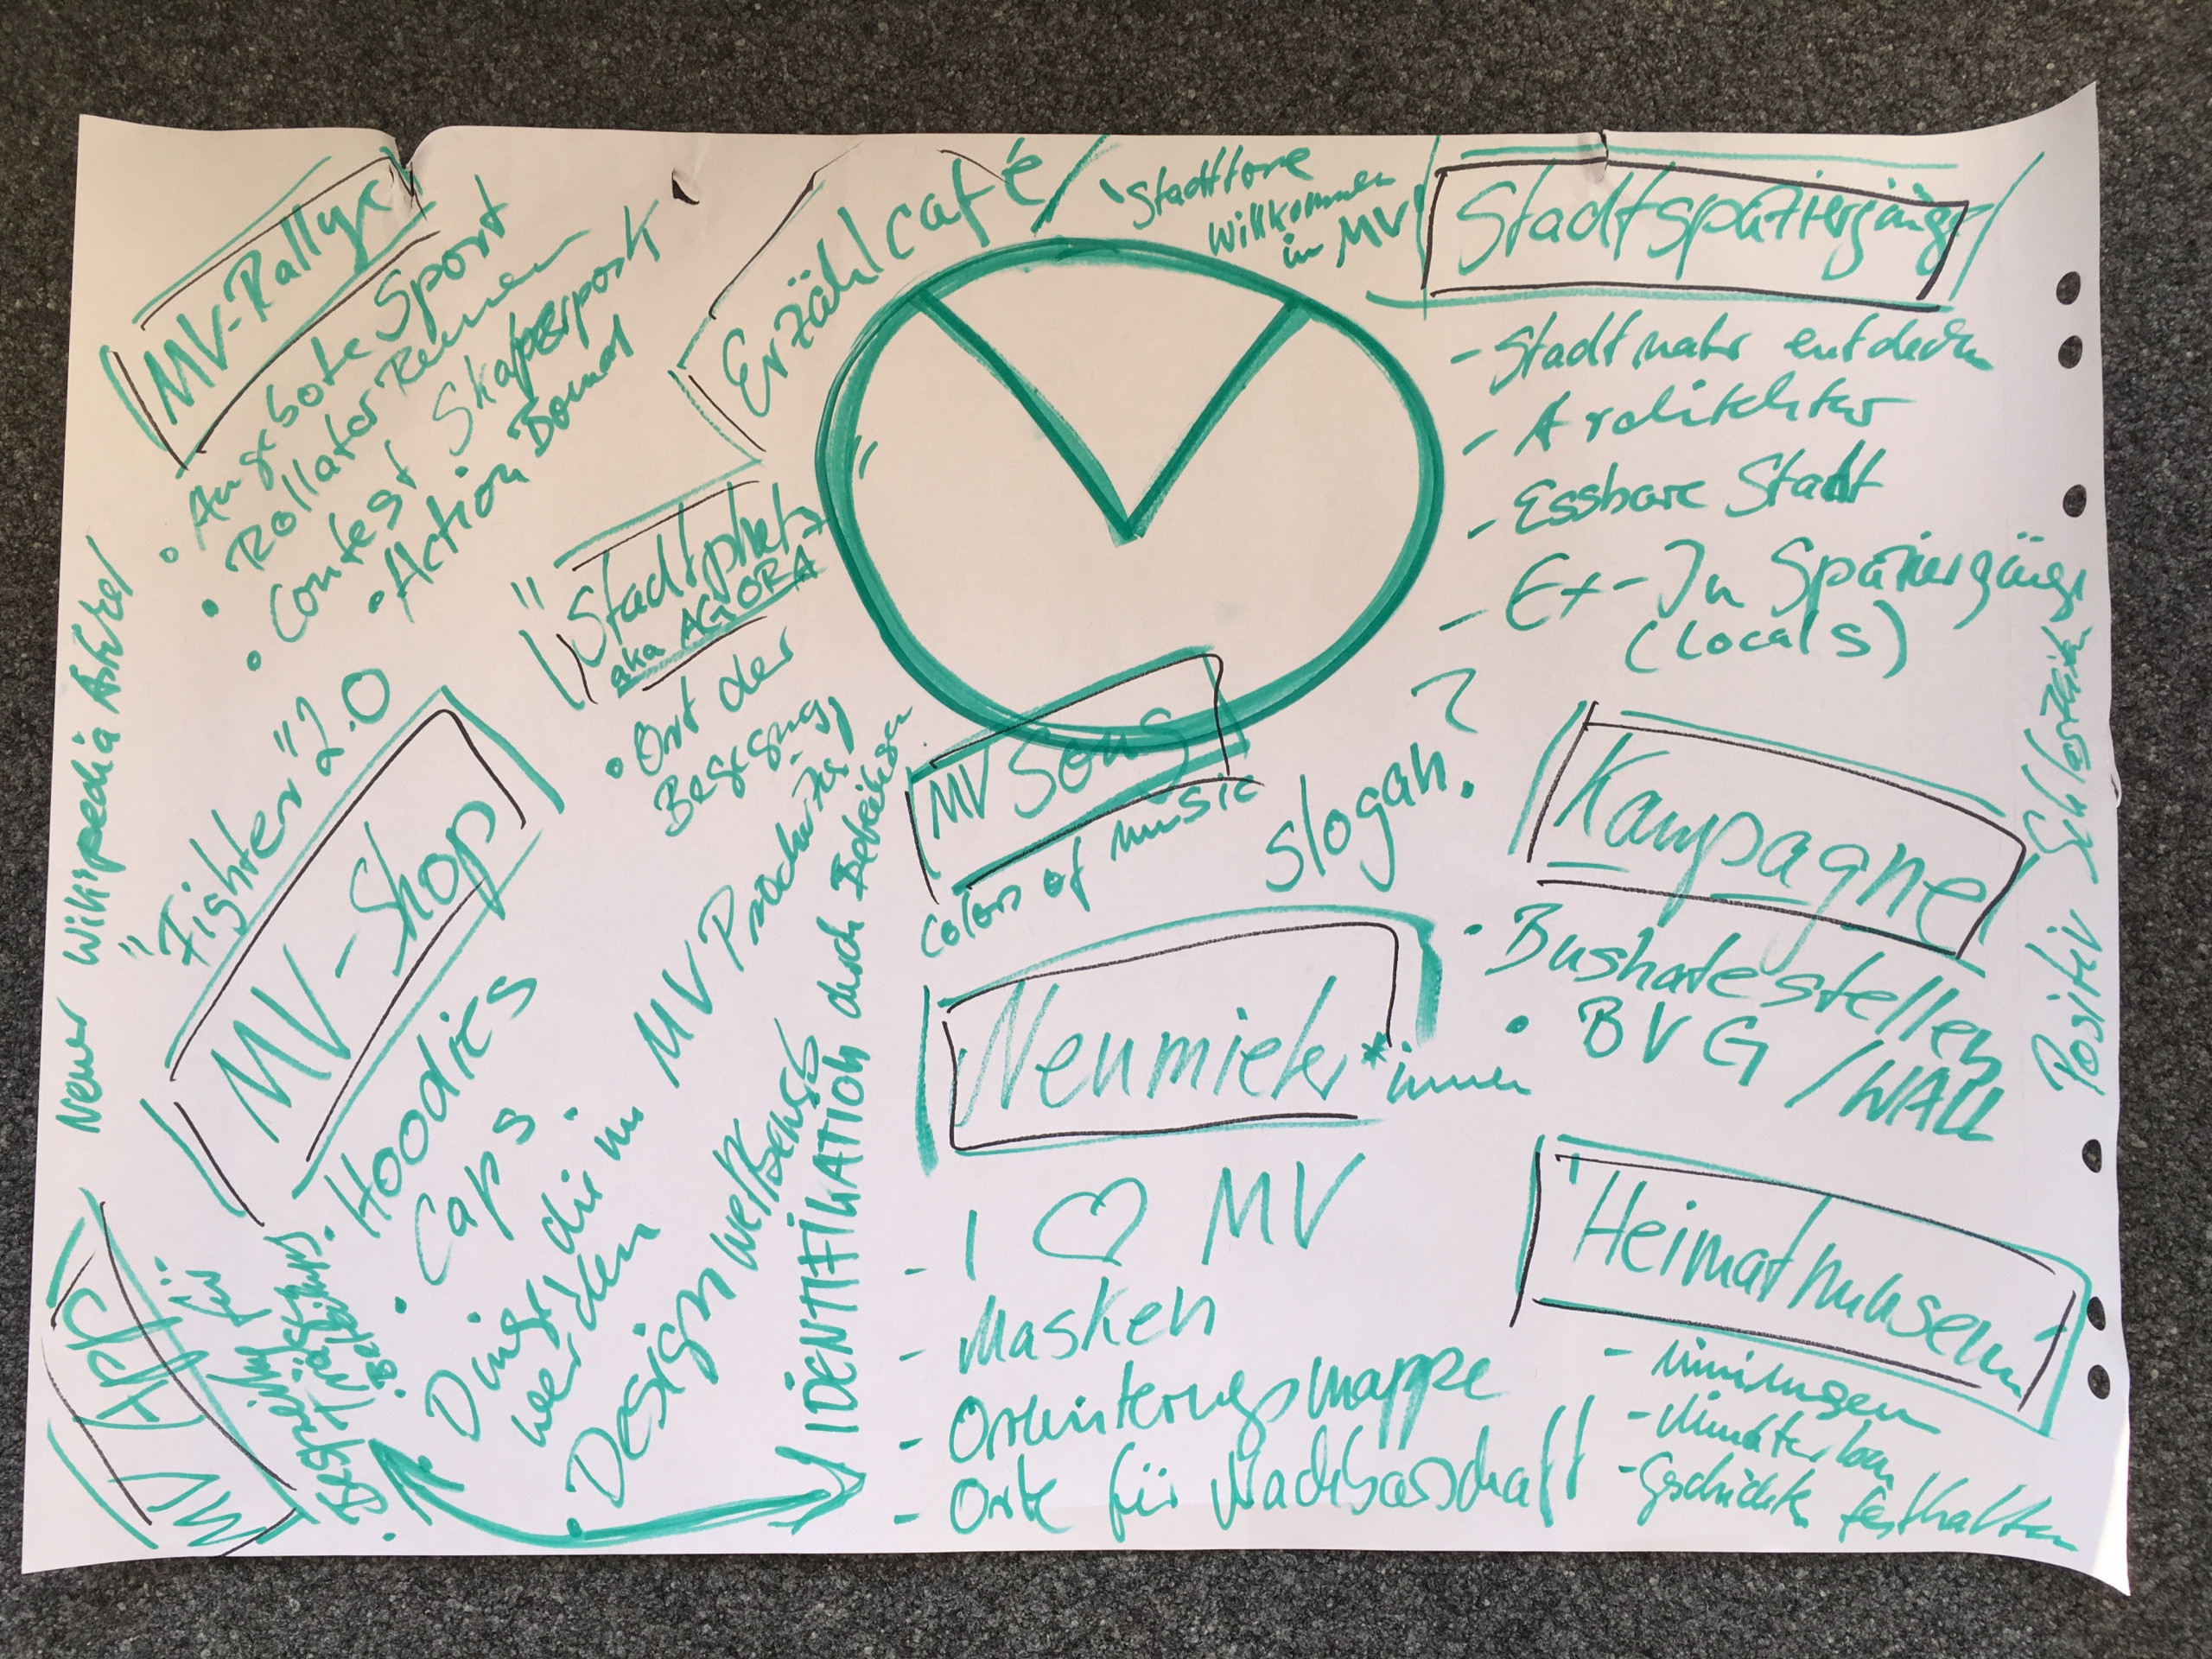 MV-Rallye
• Angebote Sport
• Rollator Rennen
• Contest Skaterpark
• Action Bound
Erzählcafé
"Stadttore
Willkommen
in MV"
Stadtspaziergänge
- Stadtnatur entdecken
- Architektur
- Essbare Stadt
- Ex-In Spaziergänge
(Locals)
"Stadtplatz"
aka AGORA
• Ort der
Begegnung
MV Song
Colors of music
Slogan?
Kampagne
• Bushaltestellen
• BVG / WALL
Positiv Schlagzeilen
Neuer Wikipedia Artikel
"Fighter" 2.0
MV-Shop
• Hoodies
• Caps
• Dinge die in MV Produziert
werden
• Design Wettbewerb
IDENTIFIKATION durch Beteiligung
Neumieter*innen
- I ♡ MV
- Masken
- Orientierungsmappe
- Orte für Nachbarschaft
Heimatmuseum
- Führungen
- Geschichte festhalten
MV App
• Beteiligung